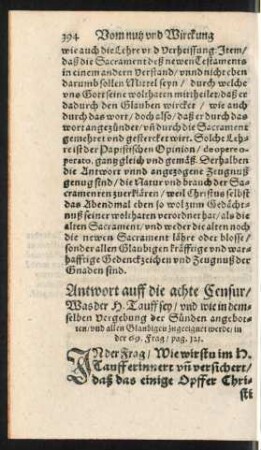 394 Vom nutz vnd Wirckung
wie auch die Lehre vñ Verheissung. Item/
daß die Sacrament deß newen Testaments
in einem andern Verstand/ vnnd nicht eben
darumb sollen Mittel seyn/ durch welche
vns Gott seine wolthaten mittheile/ daß er
dadurch den Glauben wircket/ wie auch
durch das wort/ doch also/ daß er durch das
wort angezündet/ vñ durch die Sacrament
gemehret vnd gestercket wirt. Solche Leh-
re ist der Papistischen Opinion/ ex opere o-
perato, gantz gleich vnd gemäß. Derhalben
die Antwort vnnd angezogene Zeugnuß
genug sind/ die Natur vnd brauch der Sa-
cramenten zuerklären/ weil Christus selbst
das Abendmal eben so wol zum Gedächt-
nuß seiner wolthaten verordnet hat/ als die
alten Sacrament/ vnd weder die alten noch
die newen Sacrament lähre oder blosse/
sonder allen Glaubigen kräfftige vnd war-
haffftige Gedenckzeichen vnd Zeugnuß der
Gnaden sind.
Antwort auff die achte Censur/
Was der H. Tauff sey/ vnd wie in dem-
selben Vergebung der Sünden angebot-
ten/ vnd allen Glaubigen zugeeignet werde/ in
der 69. Frag/ pag. 121.
IN der Frag/ Wie wirstu im H.
Tauff erinnert vñ versichert/
daß das einige Opffer Chri-
sti